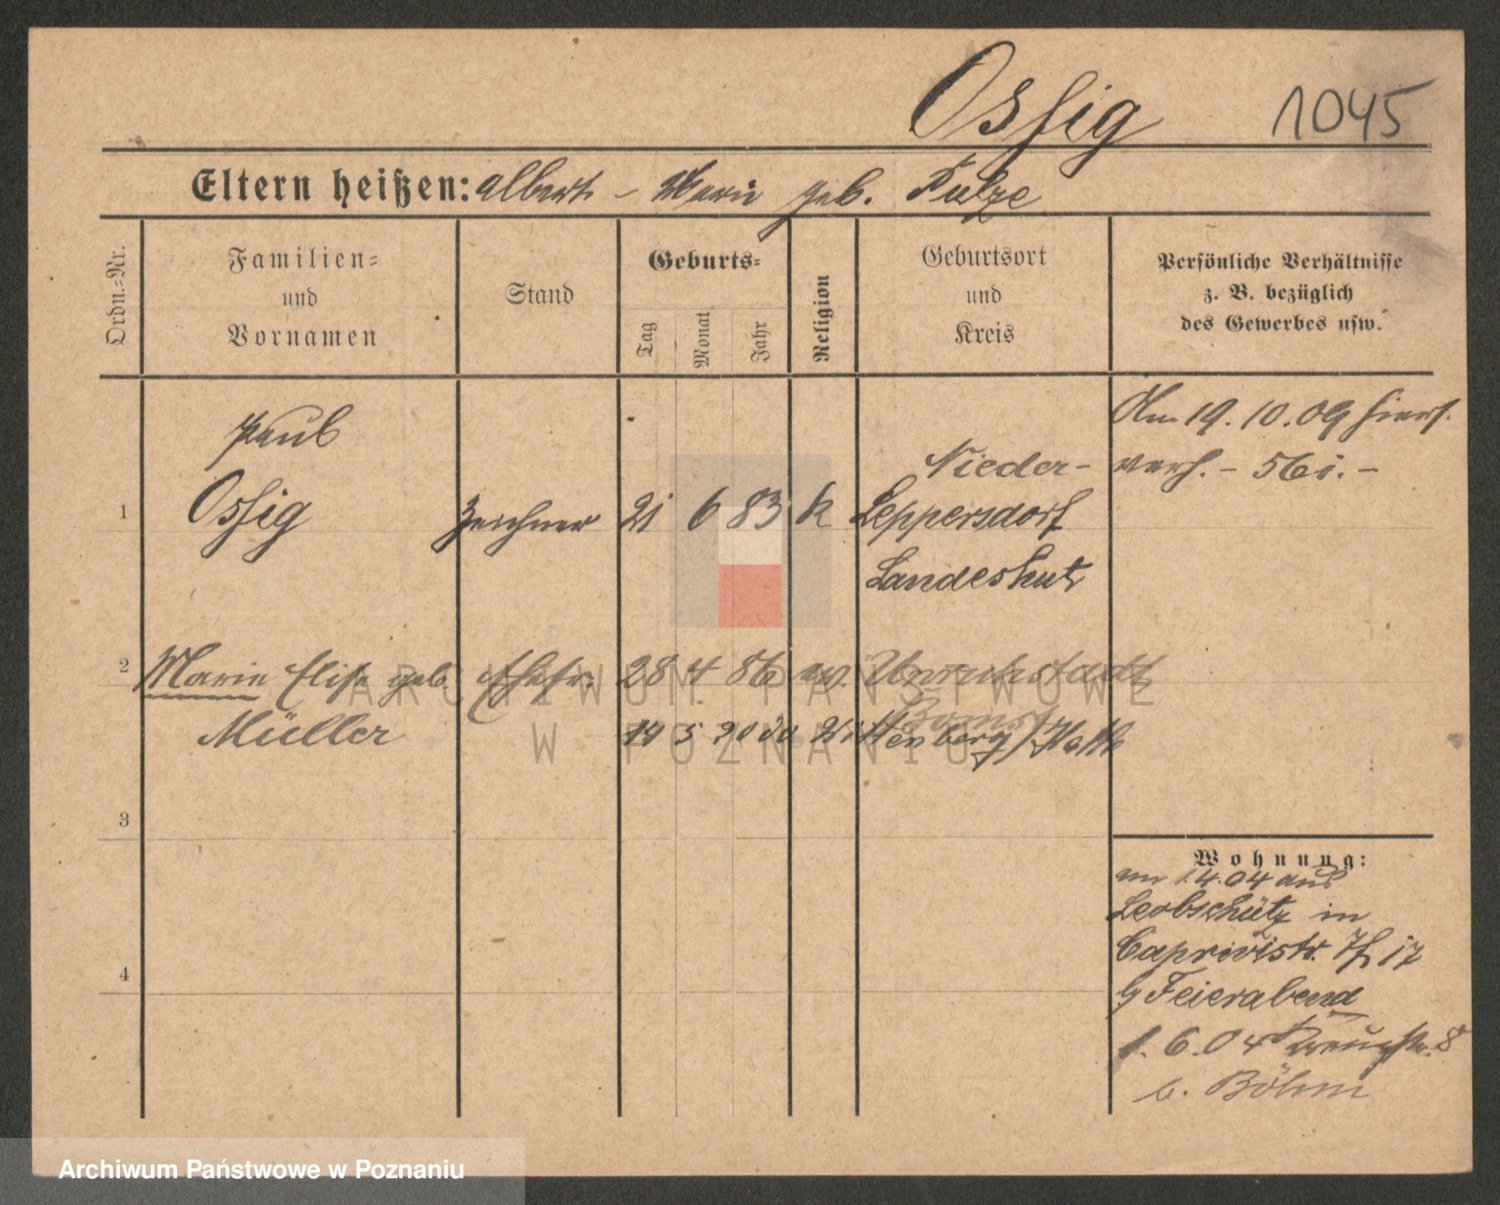 Ossig 1045
Eltern heißen: Albert – Marie geb. Pulze
Ordn.-Nr.
Familien-
und
Vornamen
Stand
Geburts-
Tag
Monat
Jahr
Religion
Geburtsort
und
Kreis
Persönliche Verhältnisse
z. B. bezüglich
des Gewerbes usw.
Am 19.10.09 hiers.
verh. – 561. –
Paul
Nieder-
1 Ossig Zeichner 21 6 83 K Leppersdorf
Landeshut
2 Marie Elise geb Ehefr. 28 4 86 ev. Unruhstadt
Bomst
Müller 19 5 20 Wittenberg / Halle
3
4
Wohnung:
1.4.04 aus
Leobschütz in
Caprivistr. 17
b Feierabend
1.6.04 8
b. Böhm
ARCHIWUM PAŃSTWOWE
W POZNANIU
Archiwum Państwowe w Poznaniu